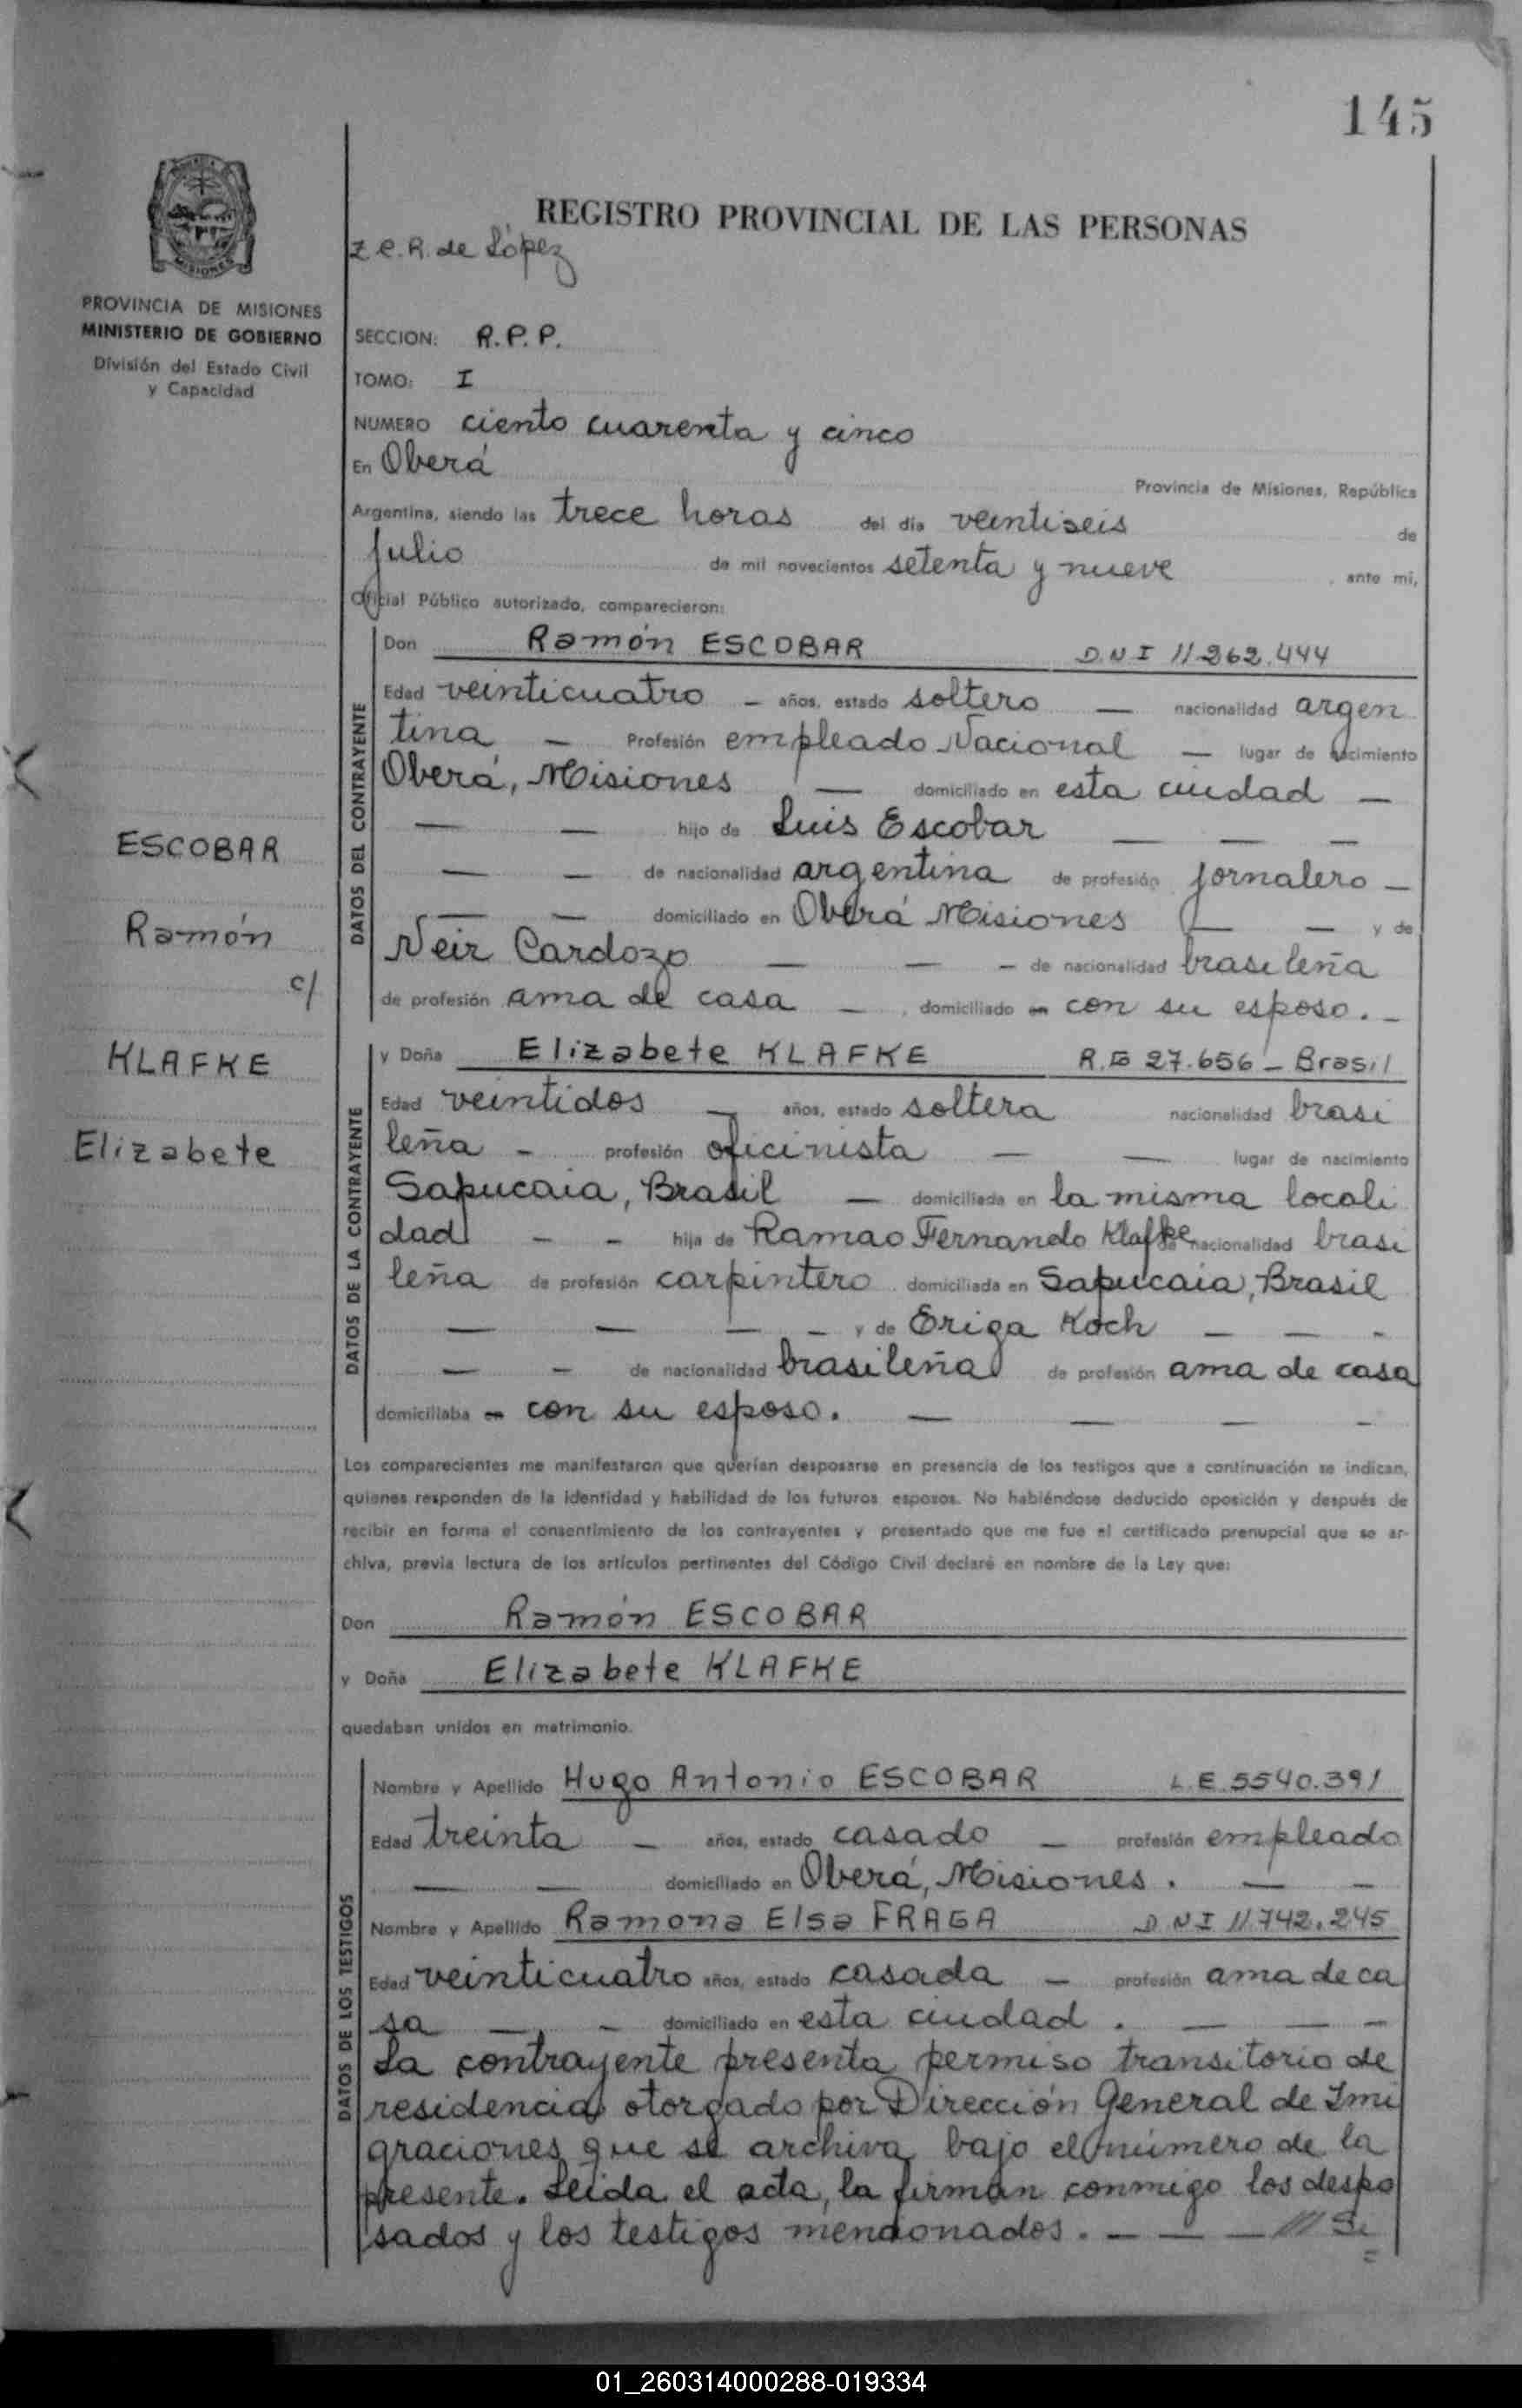 145
REGISTRO PROVINCIAL DE LAS PERSONAS
Z C. R. de López
MISIONES
PROVINCIA DE MISIONES
MINISTERIO DE GOBIERNO
División del Estado Civil
y Capacidad
SECCION: R.P.P.
TOMO: I
NUMERO ciento cuarenta y cinco
En Oberá
Provincia de Misiones, República
Argentina, siendo las trece horas del día veintiseis de
Julio de mil novecientos setenta y nueve, ante mí,
Oficial Público autorizado, comparecieron:
DATOS DEL CONTRAYENTE
Don Ramón ESCOBAR D.N.I 11.262.444
Edad veinticuatro - años, estado soltero - nacionalidad argen
tina - Profesión empleado Nacional - lugar de nacimiento
Oberá, Misiones - domiciliado en esta ciudad -
- - hijo de Luis Escobar - - -
- - de nacionalidad argentina de profesión jornalero -
- - domiciliado en Oberá Misiones - - y de
Neir Cardozo - - - de nacionalidad brasileña
de profesión ama de casa -, domiciliado en con su esposo. -
ESCOBAR
Ramón
c/
KLAFKE
Elizabete
DATOS DE LA CONTRAYENTE
y Doña Elizabete KLAFKE R.G 27.656 - Brasil
Edad veintidos - años, estado soltera nacionalidad brasi
leña - profesión oficinista - - lugar de nacimiento
Sapucaia, Brasil - domiciliada en la misma locali
dad - - hija de Ramao Fernando Klafke de nacionalidad brasi
leña de profesión carpintero domiciliada en Sapucaia, Brasil
- - - - y de Eriga Koch - - -
- - de nacionalidad brasileña de profesión ama de casa
domiciliaba en con su esposo. - - - -
Los comparecientes me manifestaron que querían desposarse en presencia de los testigos que a continuación se indican,
quienes responden de la identidad y habilidad de los futuros esposos. No habiéndose deducido oposición y después de
recibir en forma el consentimiento de los contrayentes y presentado que me fue el certificado prenupcial que se ar-
chiva, previa lectura de los artículos pertinentes del Código Civil declaré en nombre de la Ley que:
Don Ramón ESCOBAR
y Doña Elizabete KLAFKE
quedaban unidos en matrimonio.
DATOS DE LOS TESTIGOS
Nombre y Apellido Hugo Antonio ESCOBAR L.E. 5540.391
Edad treinta - años, estado casado - profesión empleado
- - domiciliado en Oberá, Misiones. - -
Nombre y Apellido Ramona Elsa FRAGA D.N.I 11.742.245
Edad veinticuatro años, estado casada - profesión ama de ca
sa - - domiciliado en esta ciudad. - - -
La contrayente presenta permiso transitorio de
residencia otorgado por Dirección General de Imi
graciones que se archiva bajo el número de la
presente. Leida el acta, la firman conmigo los despo
sados y los testigos mencionados. - - -
01_260314000288-019334